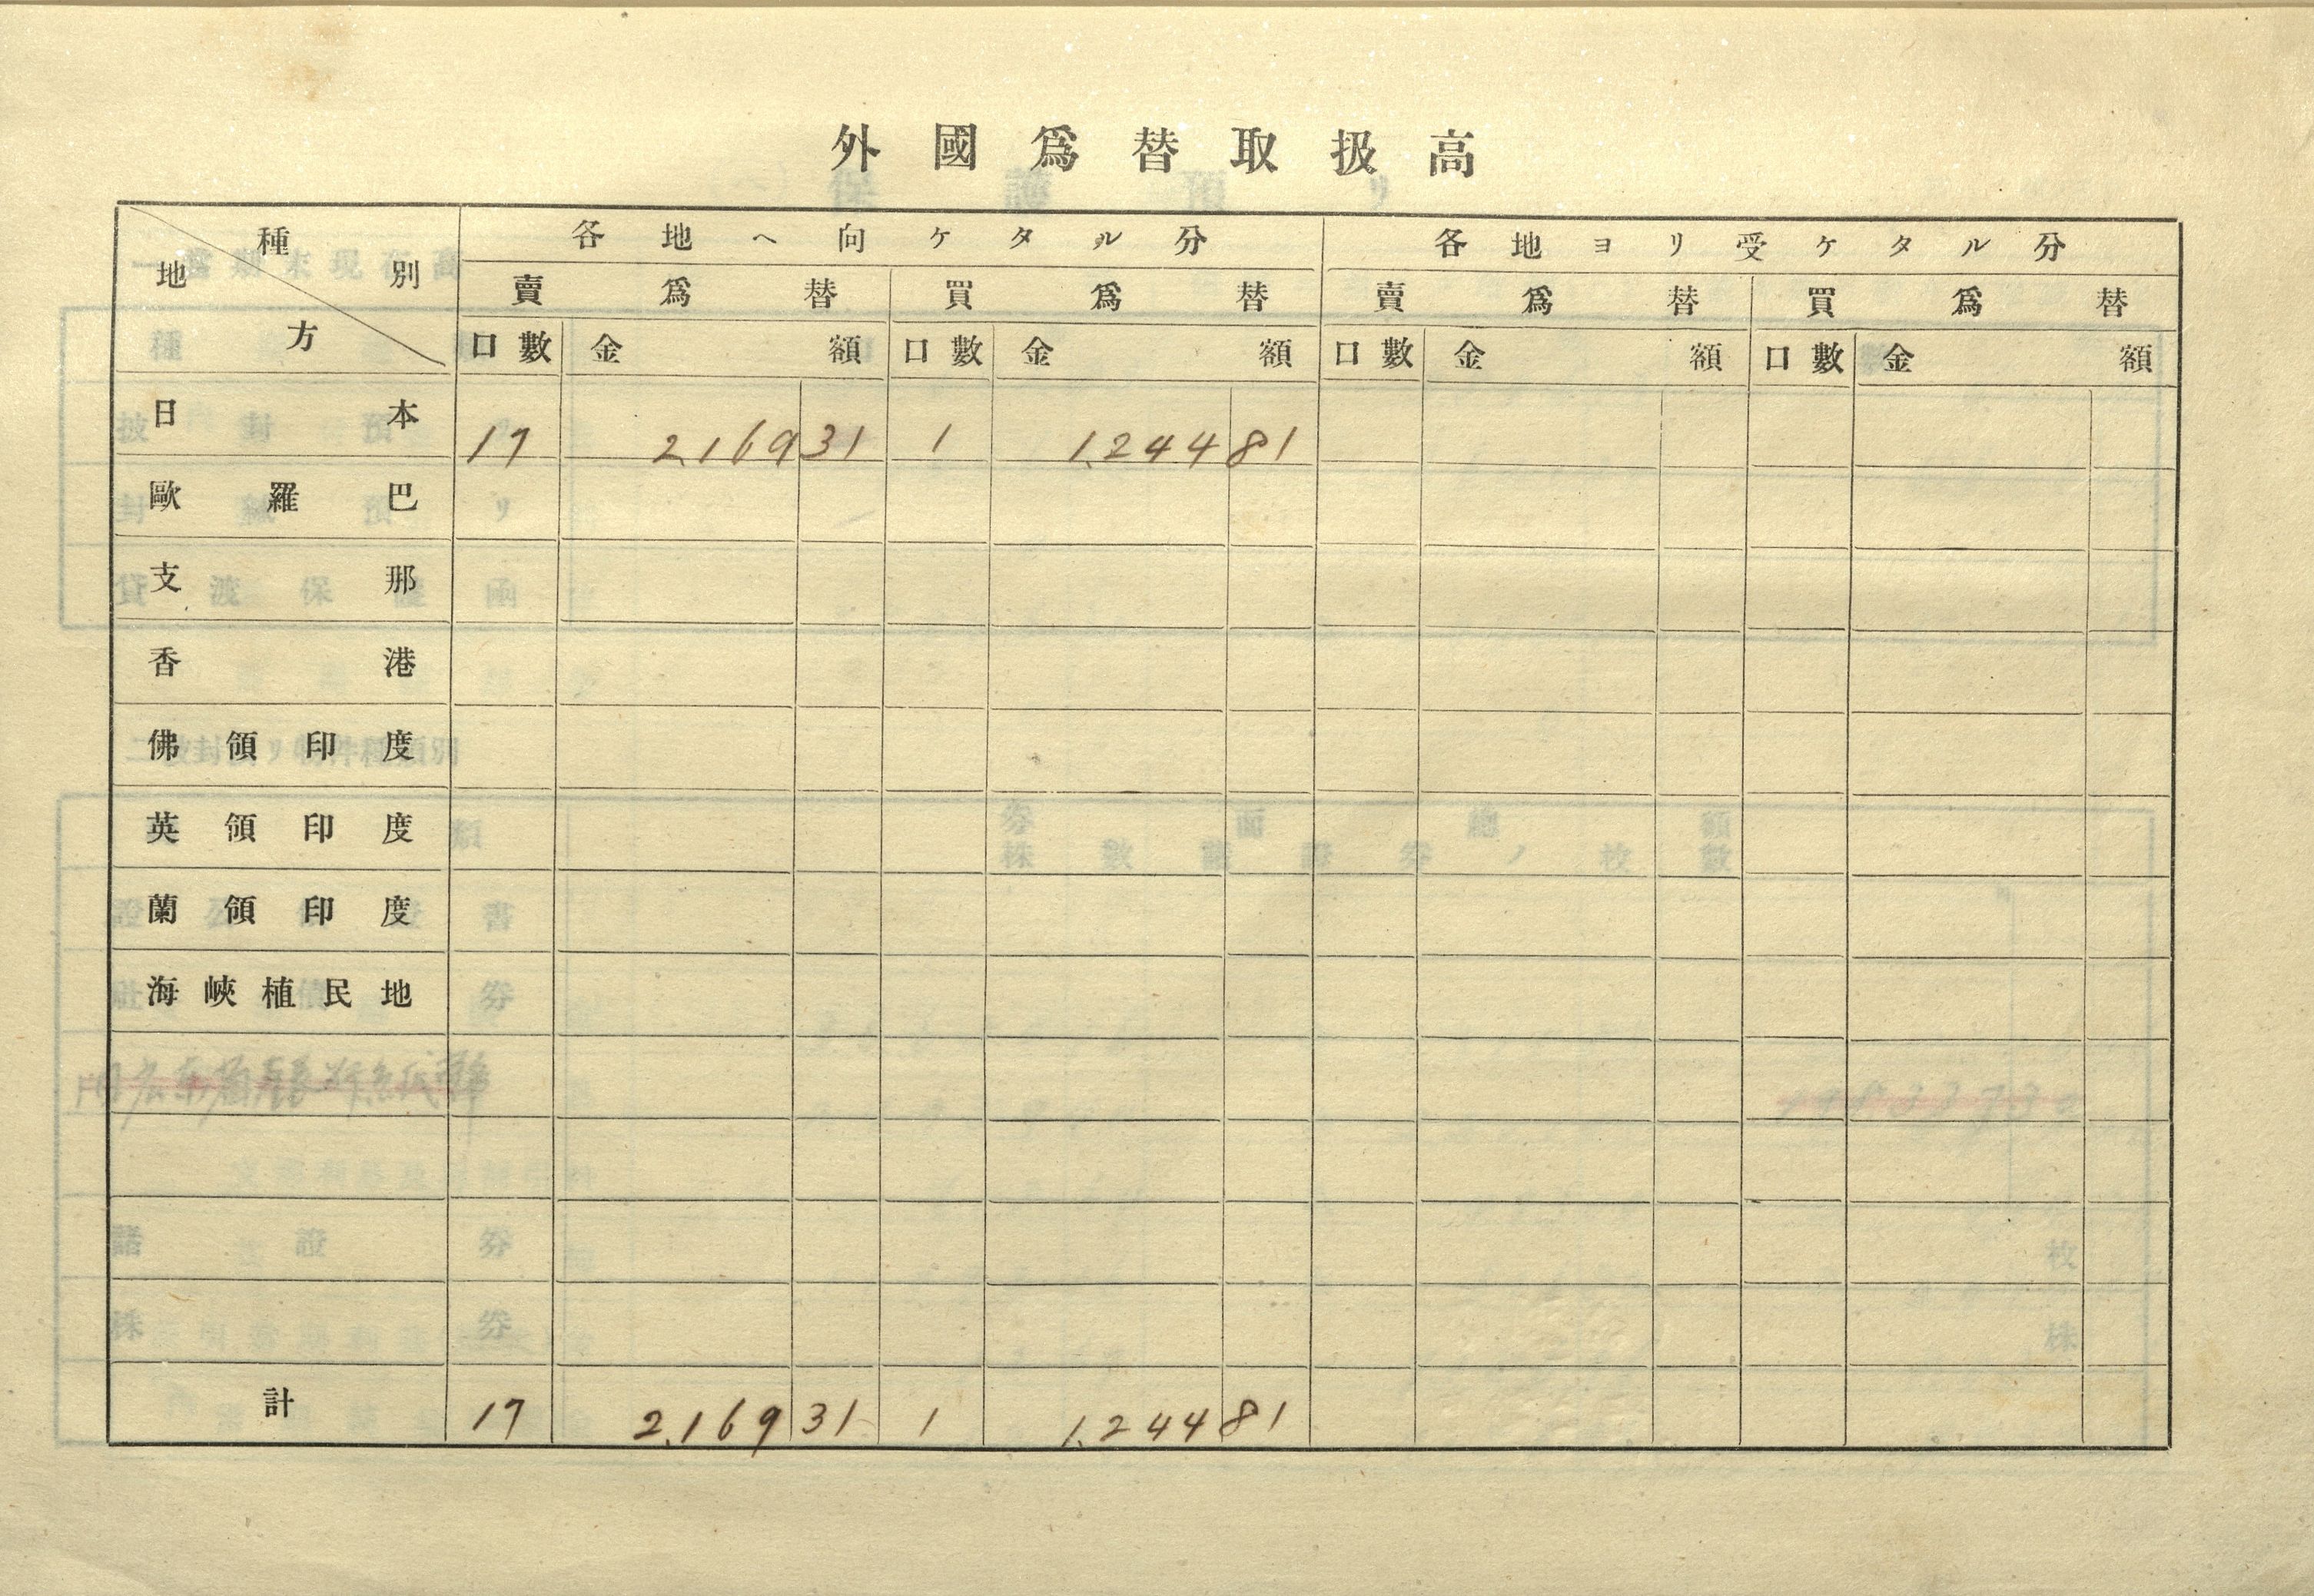 外國爲替取扱高
種別 地方 各地ヘ向ケタル分 各地ヨリ受ケタル分
賣爲替 買爲替 賣爲替 買爲替
口數 金額 口數 金額 口數 金額 口數 金額
日本 17 2,169 31 1 1,244 81
歐羅巴
支那
香港
佛領印度
英領印度
蘭領印度
海峽植民地
計 17 2,169 31 1 1,244 81